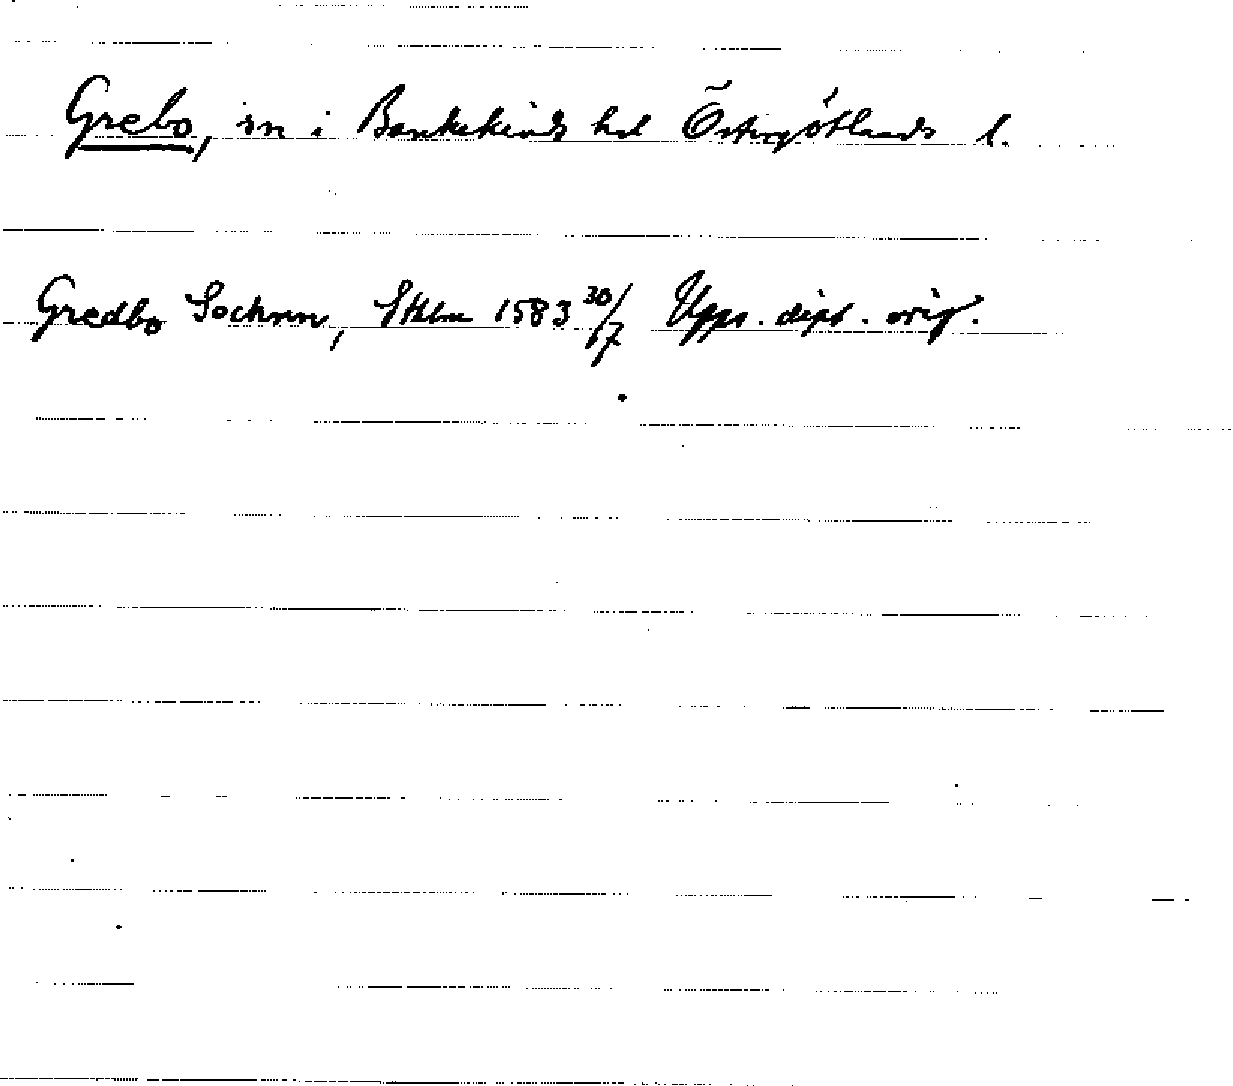 Grebo, sn i Bankekinds hd Östergötlands l.
Gredbo Sochnn, Sthlm 1583 30/17 Upps. dipl. orig.